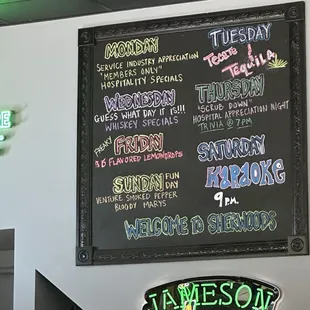 MONDAY
SERVICE INDUSTRY APPRECIATION
"MEMBERS ONLY"
HOSPITALITY SPECIALS
TUESDAY
TECATE AND
TEQUILA
WEDNESDAY
GUESS WHAT DAY IT IS!!!
WHISKEY SPECIALS
THURSDAY
"SCRUB DOWN"
HOSPITAL APPRECIATION NIGHT
TRIVIA @ 7PM
FREAKY
FRIDAY
$5 FLAVORED LEMONDROPS
SATURDAY
KARAOKE
9PM
SUNDAY FUN
DAY
VENTURE SMOKED PEPPER
BLOODY MARYS
WELCOME TO SHERWOODS
JAMESON